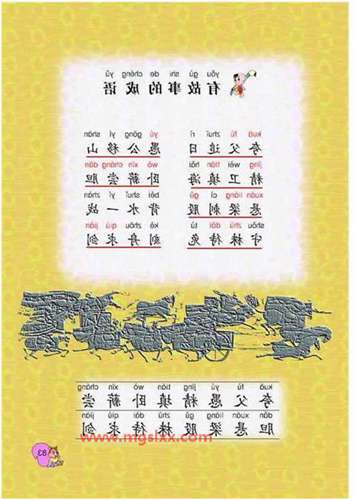 yǒu gù shi de chéng yǔ
有故事的成语
kuā fù zhuī rì yú gōng yí shān
夸父追日 愚公移山
jīng wèi tián hǎi wò xīn cháng dǎn
精卫填海 卧薪尝胆
xuán liáng cì gǔ bèi shuǐ yí zhàn
悬梁刺股 背水一战
shǒu zhū dài tù kè zhōu qiú jiàn
守株待兔 刻舟求剑
kuā fù yú tián wò xīn cháng
夸父愚填卧薪尝
dǎn xuán liáng gǔ zhū dài qiú jiàn
胆悬梁股株待求剑
www.mgslxx.com
83